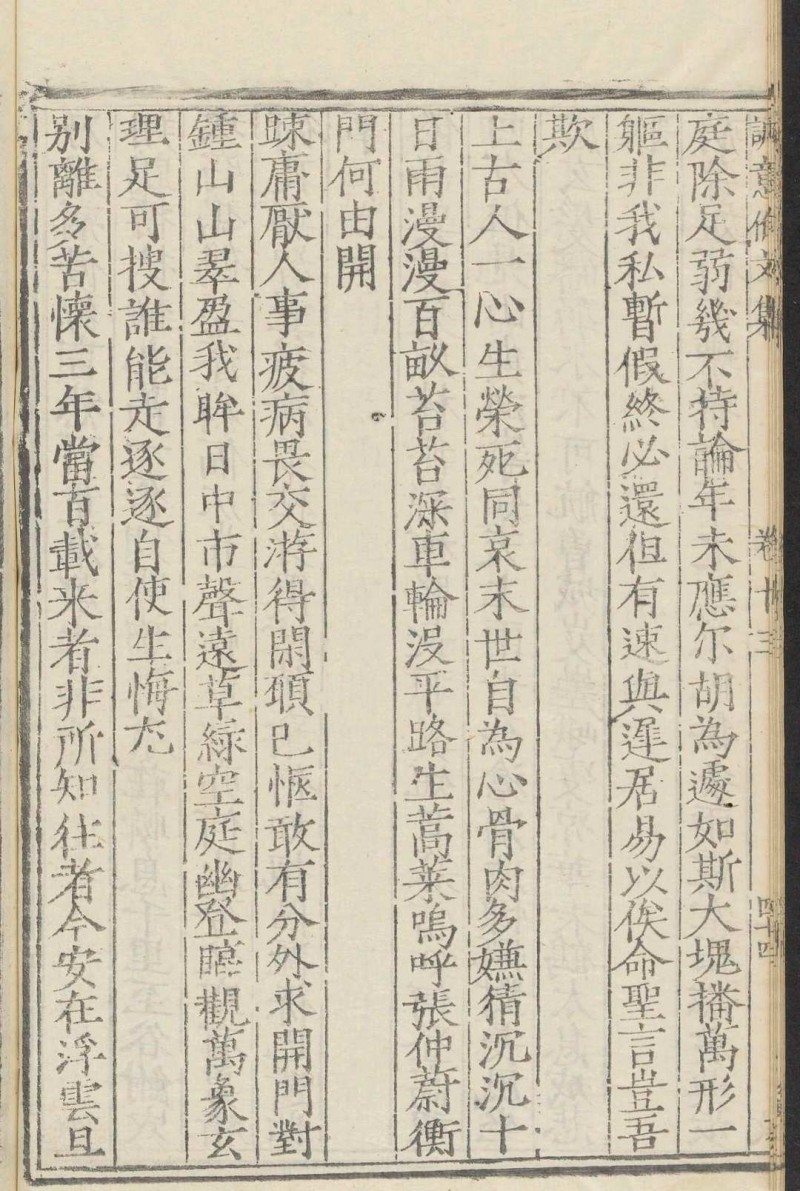 誠意伯文集 卷十三 四十四
庭除足弱幾不持論年未應尔胡為遽如斯大塊播萬形一
軀非我私暫假終必還但有速與遲居易以俟命聖言豈吾
欺
上古人一心生榮死同哀末世自為心骨肉多嫌猜沉沉十
日雨漫漫百畝苔苔深車輪沒平路生蒿萊嗚呼張仲蔚衡
門何由開
踈庸厭人事疲病畏交游得閑碩已愜敢有分外求開門對
鍾山山翠盈我眸日中市聲遠草綠空庭幽登臨觀萬象玄
理足可搜誰能走逐逐自使生悔尤
别離多苦懷三年當百載来者非所知往者今安在浮雲旦